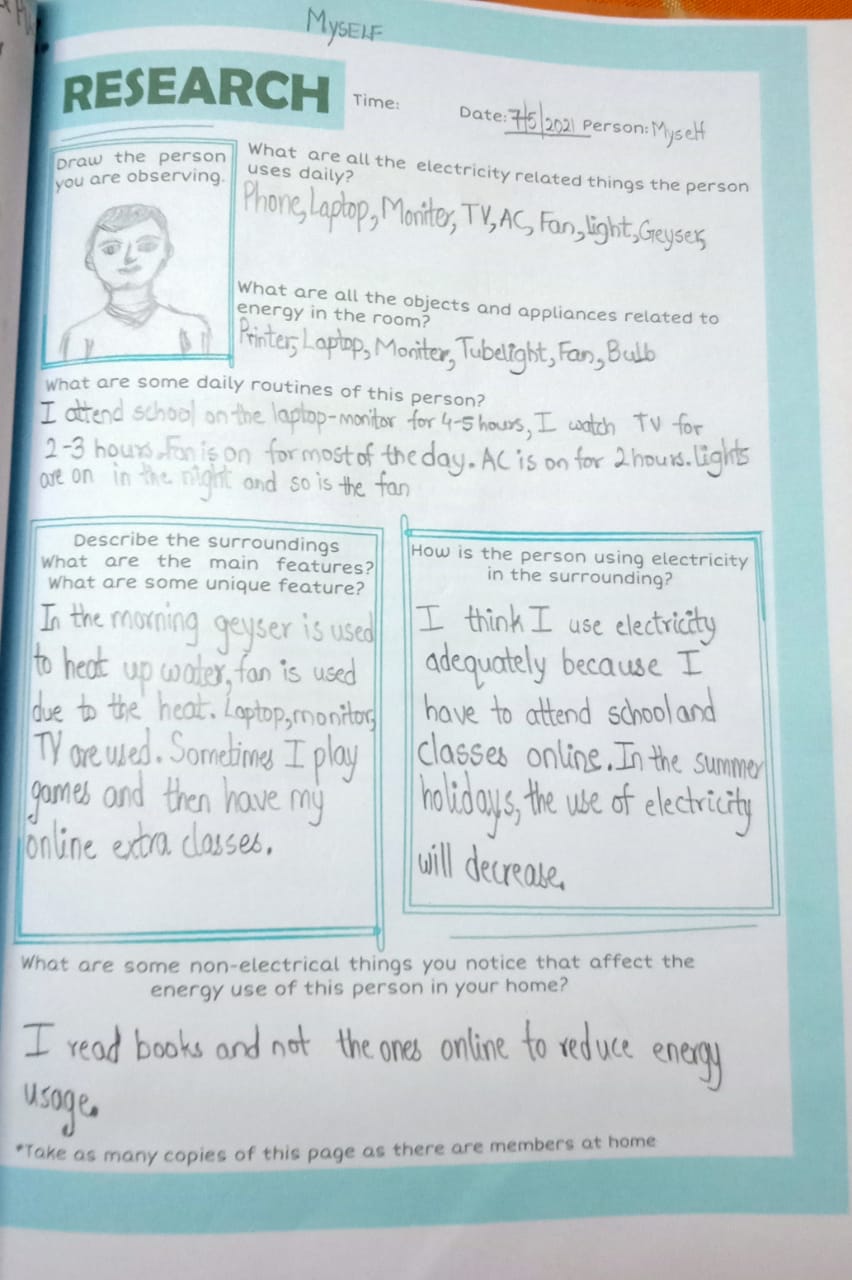 MYSELF
RESEARCH
Time:
Date: 7/5/2021 Person: Myself
Draw the person
you are observing.
What are all the electricity related things the person
uses daily?
Phone, Laptop, Moniter, TV, AC, Fan, light, Geyser,
What are all the objects and appliances related to
energy in the room?
Printer, Laptop, Moniter, Tubelight, Fan, Bulb
What are some daily routines of this person?
I attend school on the laptop-monitor for 4-5 hours, I watch TV for
2-3 hours. Fan is on for most of the day. AC is on for 2 hours. Lights
are on in the night and so is the fan
Describe the surroundings
What are the main features?
What are some unique feature?
In the morning geyser is used
to heat up water, fan is used
due to the heat. Laptop, monitor,
TV are used. Sometimes I play
games and then have my
online extra classes.
How is the person using electricity
in the surrounding?
I think I use electricity
adequately because I
have to attend school and
classes online. In the summer
holidays, the use of electricity
will decrease.
What are some non-electrical things you notice that affect the
energy use of this person in your home?
I read books and not the ones online to reduce energy
usage.
*Take as many copies of this page as there are members at home